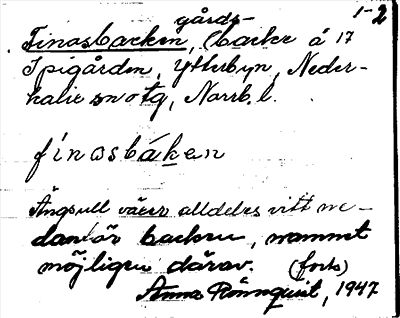 gårds- 1-2
Finasbacken, backe å 17
Spigården, Ytterbyn, Neder-
kalix sn o tg, Norrb. l.
finasbáken
Ängsull växer alldeles vitt ne-
danför backen, namnet
möjligen därav. (forts)
Anna Rönnquist, 1947